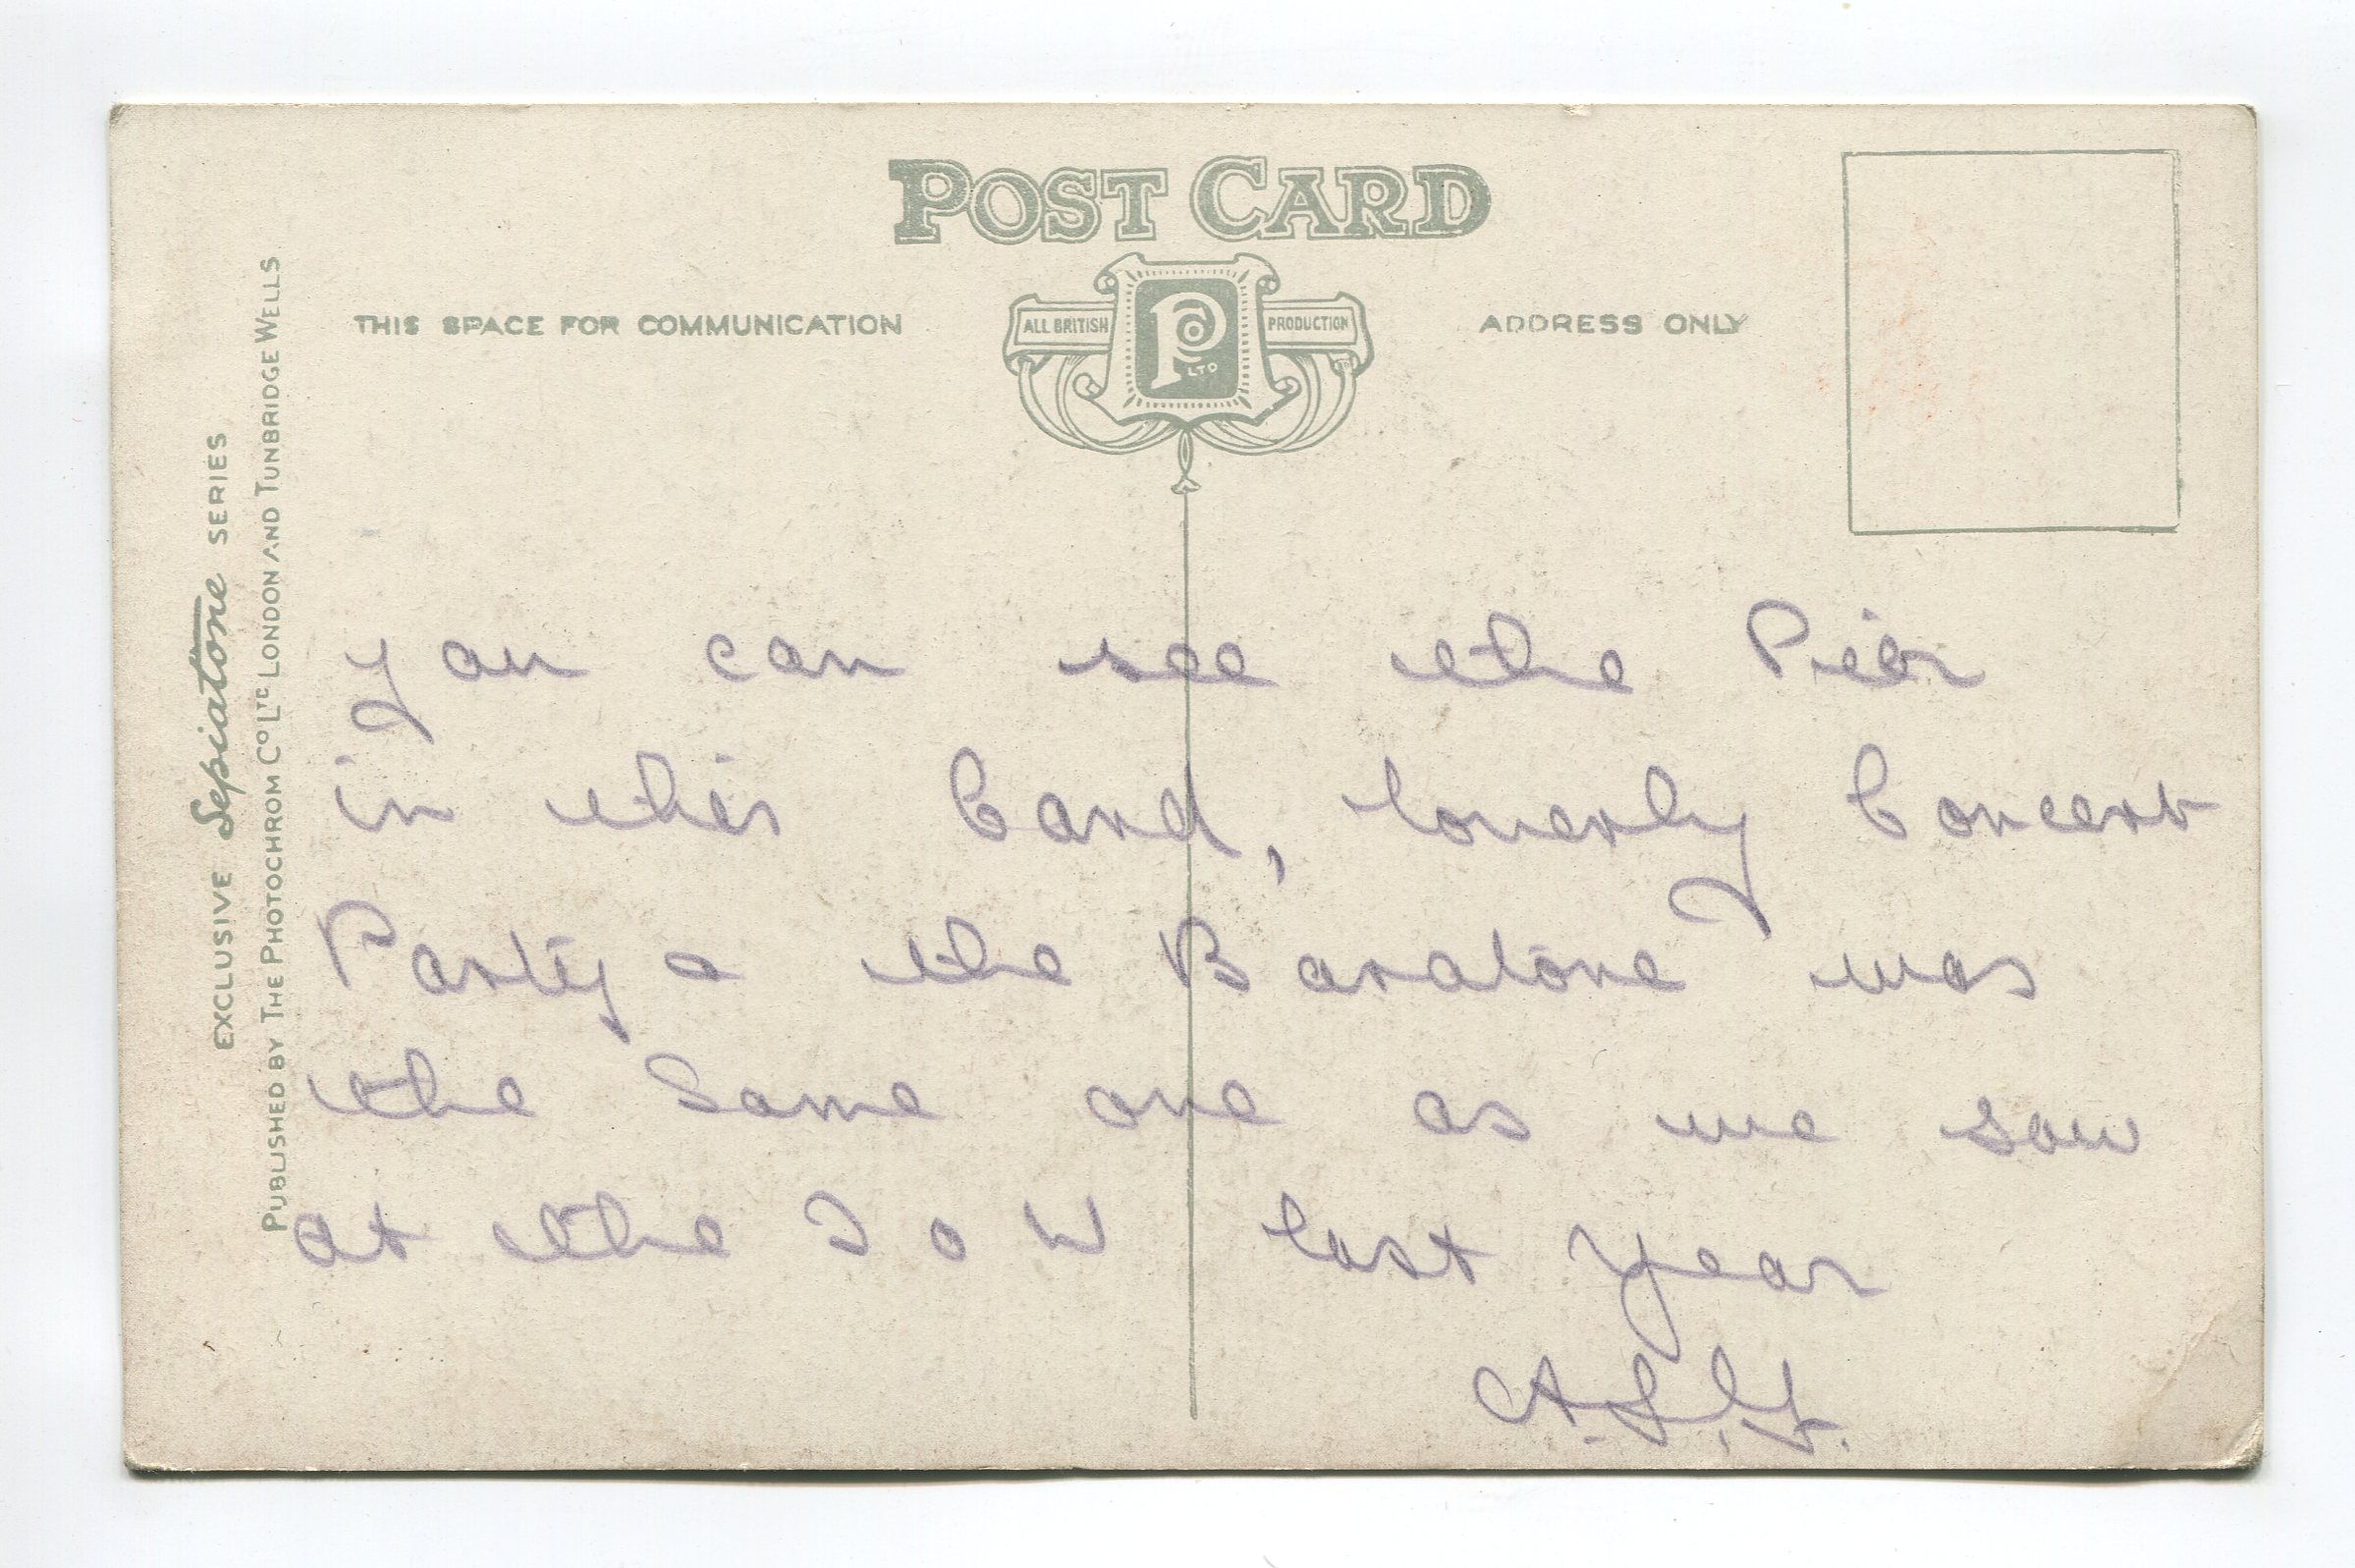 POST CARD
THIS SPACE FOR COMMUNICATION
ALL BRITISH PRODUCTION
P LTD
ADDRESS ONLY
EXCLUSIVE Sepiatone SERIES
PUBLISHED BY THE PHOTOCHROM CO LTD LONDON AND TUNBRIDGE WELLS
you can see the Pier
in this Card, louerly Concert
Party & the Baratone was
the Same one as we saw
at the I o W last year